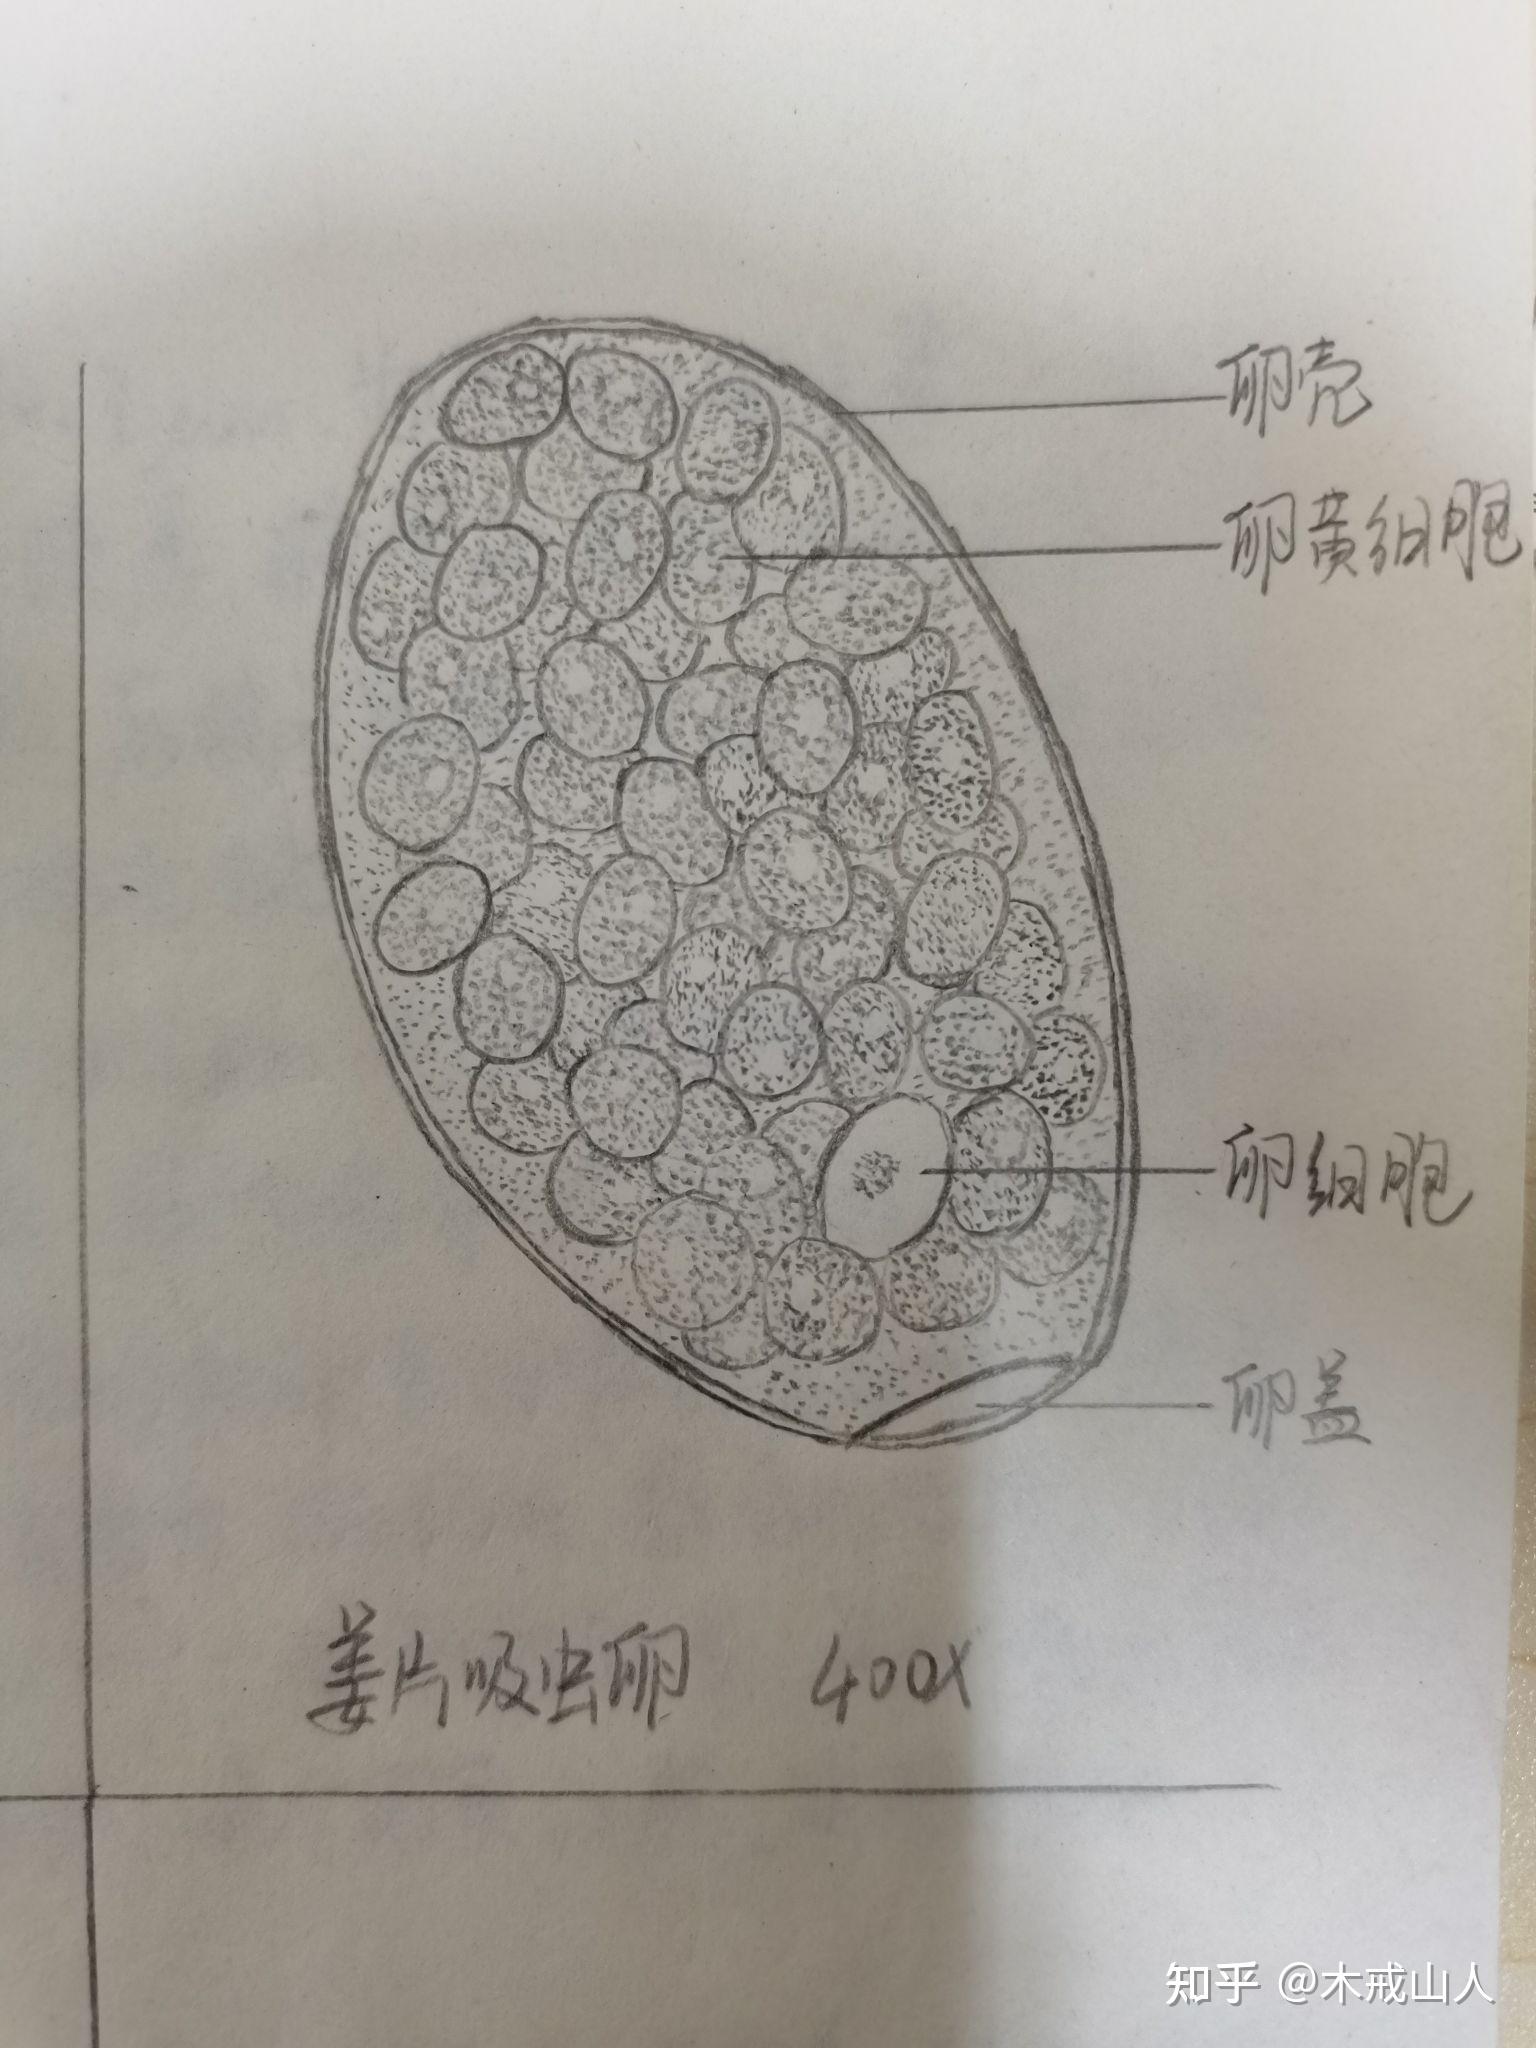 卵壳
卵黄细胞
卵细胞
卵盖
姜片吸虫卵 400X
知乎 @木戒山人